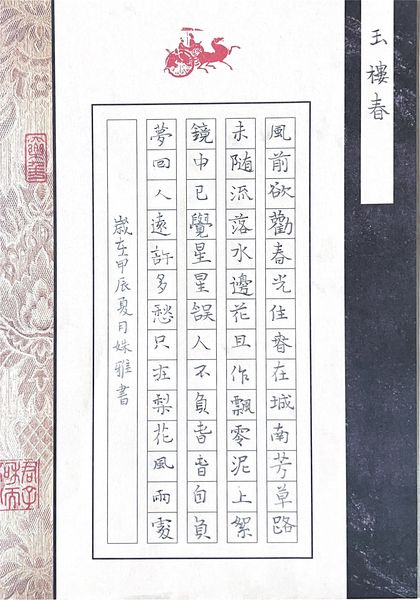 玉樓春
風前欲勸春光住旾在城南芳草路
未隨流落水邊花且作飄零泥上絮
鏡中已覺星星誤人不負旾旾自負
夢回人遠許多愁只在梨花風雨處
歲在甲辰夏月姝雅書